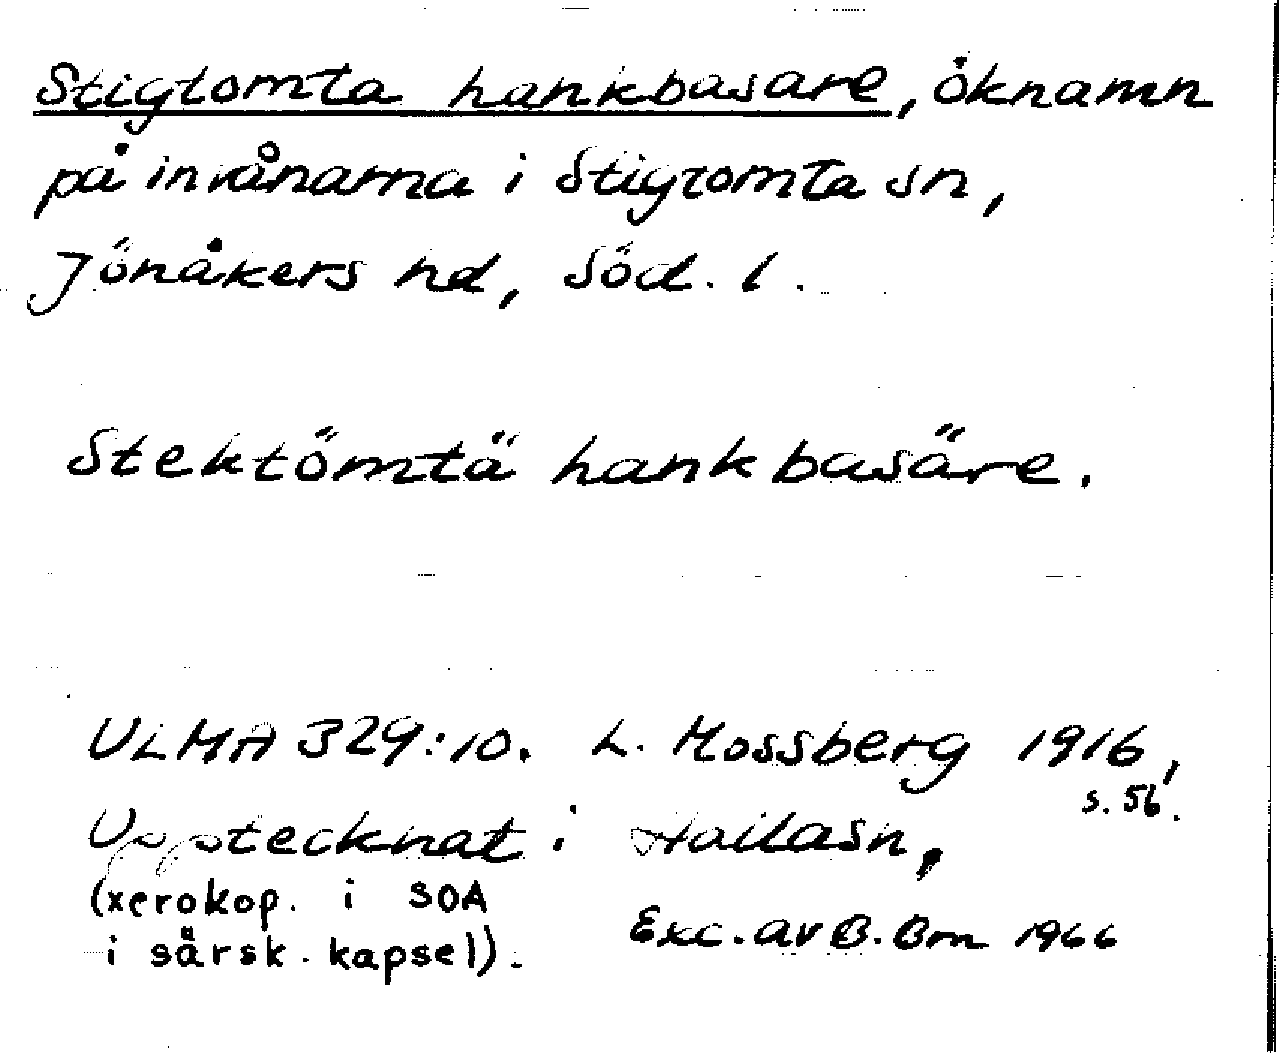 Stigtomta hankbasare, öknamn
på invånarna i Stigtomta sn,
Jönåkers hd, Söd. l.
Stektömtä hankbasäre.
ULMA 329:10. L. Mossberg 1916,
s. 56.
Upptecknat i Halla sn,
(xerokop. i SOA
i särsk. kapsel).
Exc. av B. Bm 1966